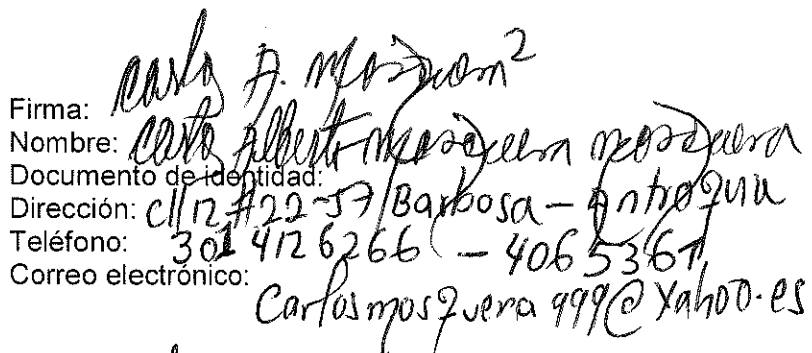 Firma: Carlos A. Mosquera M²
Nombre: Carlos Alberto Mosquera Mosquera
Documento de identidad:
Dirección: cll 12 #22-57 Barbosa - Antioquia
Teléfono: 301 4126266 - 4065367
Correo electrónico:
Carlosmosquera999@Yahoo.es